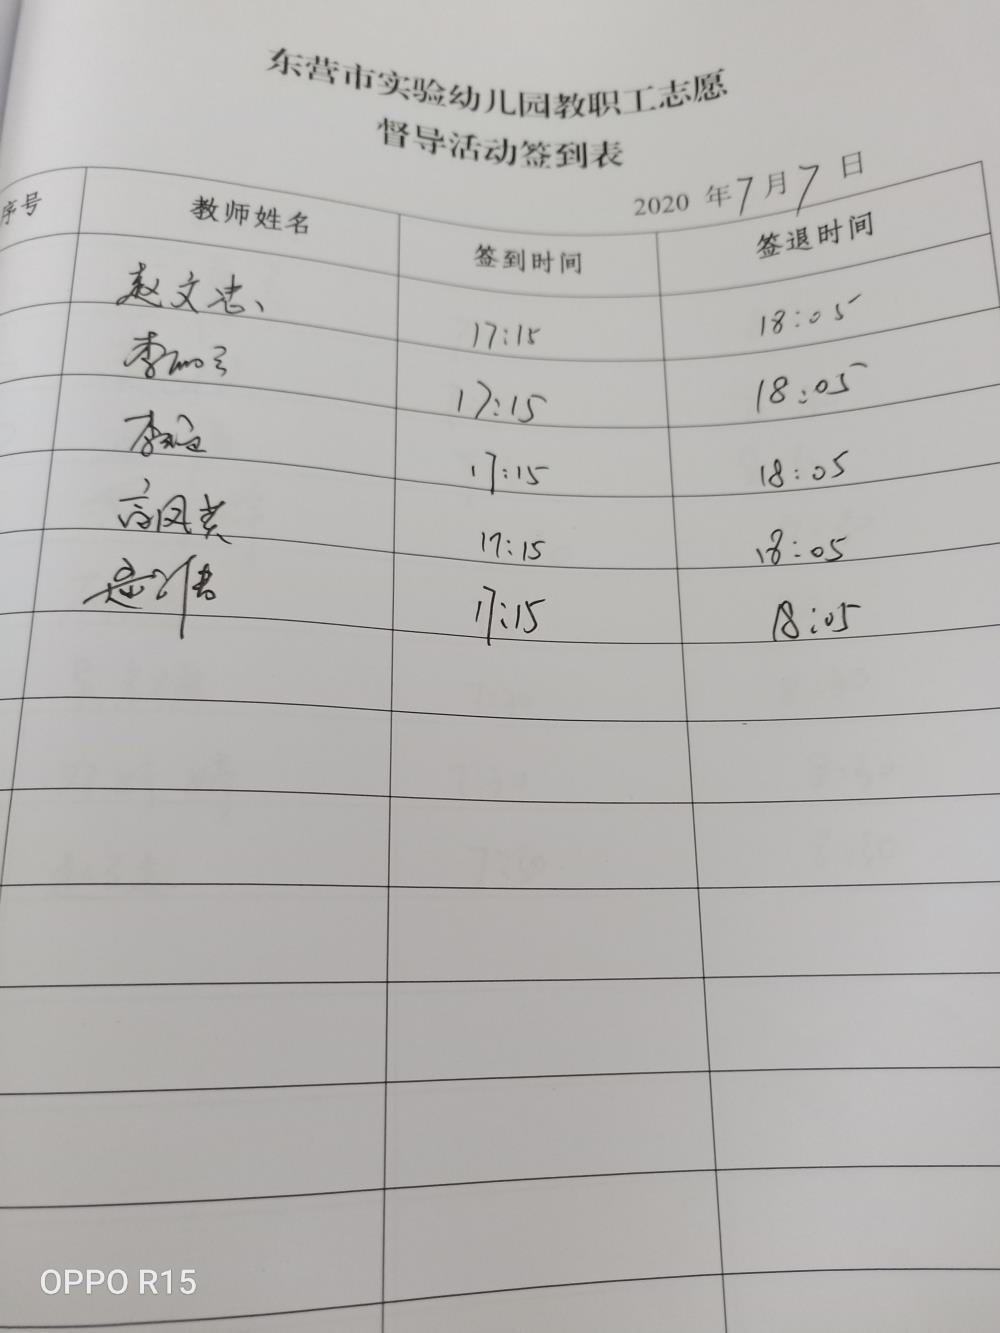 东营市实验幼儿园教职工志愿
督导活动签到表
2020 年7月7日
序号 教师姓名 签到时间 签退时间
赵文忠 17:15 18:05
李 17:15 18:05
李 17:15 18:05
高凤英 17:15 18:05
17:15 18:05
OPPO R15